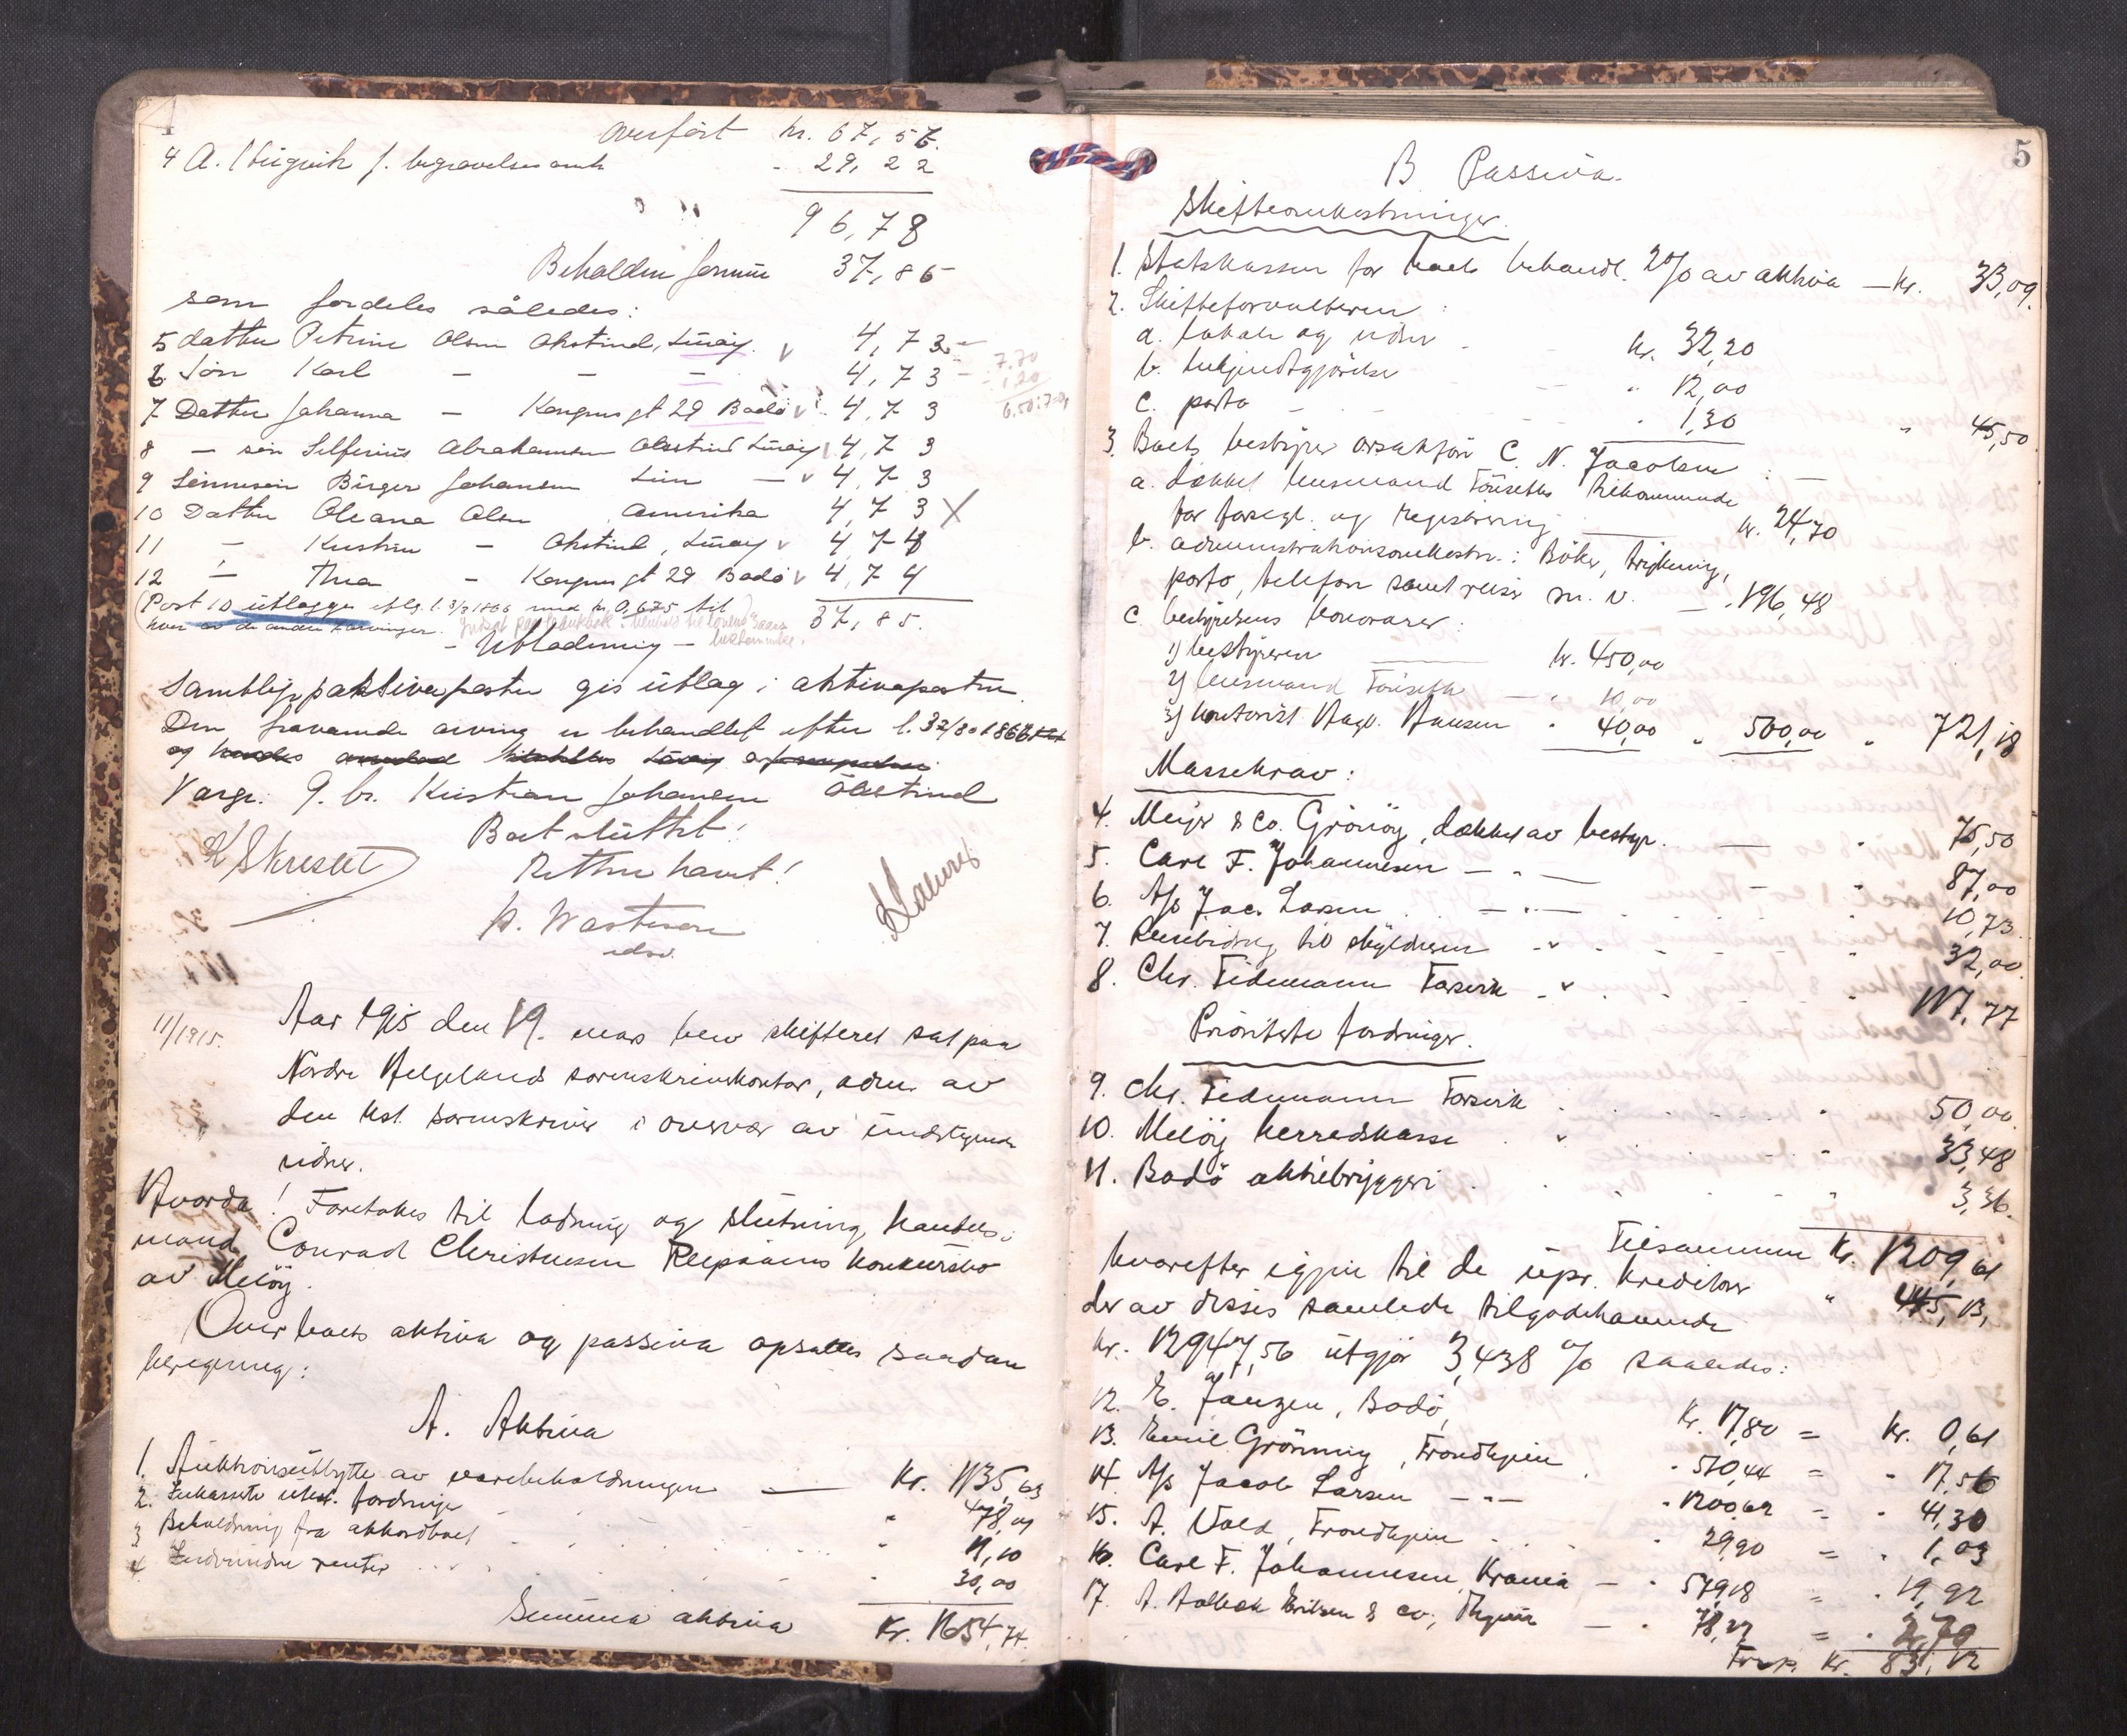 4
overført kr. 67,56
4 A. f. begravelsesomk - 29,22
96,78
Beholden formue 37,85
som fordeles således:
5 datter Petrine Olsen Okstind, Lurøy. v 4,73
6 Søn Karl - - - 4,73
7 Datter Johanna - Kongens gt 29 Bodø v 4,73
8 - søn Selferius Abrahamsen Okstind Lurøy v 4,73
9 Sønnesøn Birger Johansen - v 4,73
10 Datter Oleana Olsen Amerika 4,73 X
11 - Kristine - Okstind, Lurøy v 4,74
12 - Thea - Kongens gt 29 Bodø v 4,74
(Post 10 utlægges efter l. 3/3 1866 med kr. 0,675 til 37,85.
hver av de andre 7 arvinger.
- Utlodning -
Samtlige passivaposter gis utlag i aktivaposten.
Den fraværende arving er behandlet efter l. 3/3 1866
og
Varge: G. br. Kristian Johansen Okstind
Boet sluttet!
Retten hævet!
K Skreslet
11/1915.
Aar 1915 den 19. mars blev skifteret sat paa
Nordre Helgelands sorenskriverkontor, adm. av
den kst. sorenskriver i overvær av undertegnede
vidner.
Hvorda! Foretokes til lodning og slutning handels-
mand Conrad Christensen Reipaaens konkursbo
av Meløy.
Over boets aktiva og passiva opsattes saadan
beregning:
A. Aktiva
1. Auktionsutbytte av varebeholdningen — Kr. 1135,63
2. Inkasserte utest. fordringer " 478,01
3 Beholdning fra akkordboet " 11,10
4 Indvundne renter " 30,00
Summa aktiva Kr. 1654,74.
5
B Passiva.
Skifteomkostninger.
1. Statskassen for boets behandl. 2% av aktiva — Kr. 33,09.
2. Skifteforvalteren:
a. lokale og vidner kr. 32,20
b. bekjendtgjørelse " 12,00
c. porto " 1,30 " 45,50
3. Boets bestyrer overretssakfør C. N. Jacobsen: —
a. dækket lensmand Tøuseths tilkommende
for forsegl. og registrering — kr. 24,70
b. administrationsomkostn.: Bøker, trykning,
porto, telefon samt reiser m. v. — " 196,48
c. bestyrelsens honorarer:
1) bestyreren — kr. 450,00
2) lensmand Tøuseth — " 10,00
3) kontorist Hansen " 40,00 " 500,00 " 721,18
Massekrav:
4. Meyer & Co. Grønøy, dækket av bestyr. — " 75,50
5. Carl F. Johannesen — " — " 87,00
6. A/s Jac. Larsen — " — 10,73
7. Reisebidrag til skyldneren — " 32,00
8. Chr. Tidemann Forsvik — " 117,77
Prioriterte fordringer.
9. Chr. Tidemann Forsvik " 50,00
10. Meløy herredskasse " 33,48
11. Bodø aktiebryggeri " 3,36.
Tilsammen Kr. 1209,61
hvorefter igjen til de upr. kreditorer " 445,13,
der av disses samlede tilgodehavende
kr. 12947,56 utgjør 3,438 % saaledes:
12. E. Jangen, Bodø, Kr. 17,80 = Kr. 0,61
13. Emil Grønning, Trondhjem " 510,44 = " 17,56
14. A/s Jacob Larsen — " — " 1200,62 = " 41,30
15. A. Vold, Trondhjem " 29,90 = " 1,03
16. Carl F. Johannesen, Krania — " 579,18 = " 19,92
17. A. Holbæk Eriksen & Co, Thjem — " 78,27 = " 2,70
Trsp. Kr. 83,12